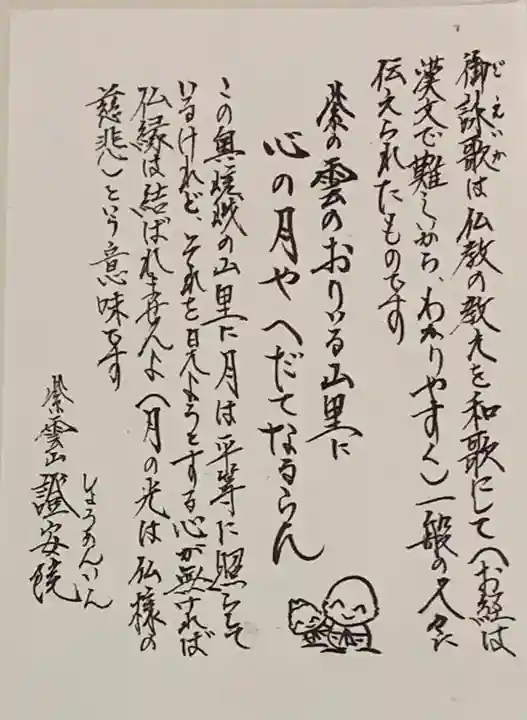 御詠歌は仏教の教えを和歌にして(お経は
ごえいか
漢文で難しいから、わかりやすく)一般の人々に
伝えられたものです
紫の雲のおりいる山里に
心の月やへだてなるらん
この奥焼畑の山里に月は平等に照らして
いるけれど、それを見ようとする心が無ければ
仏縁は結ばれませんよ(月の光は仏様の
慈悲)という意味です
紫雲山 證安院
しょうあんいん